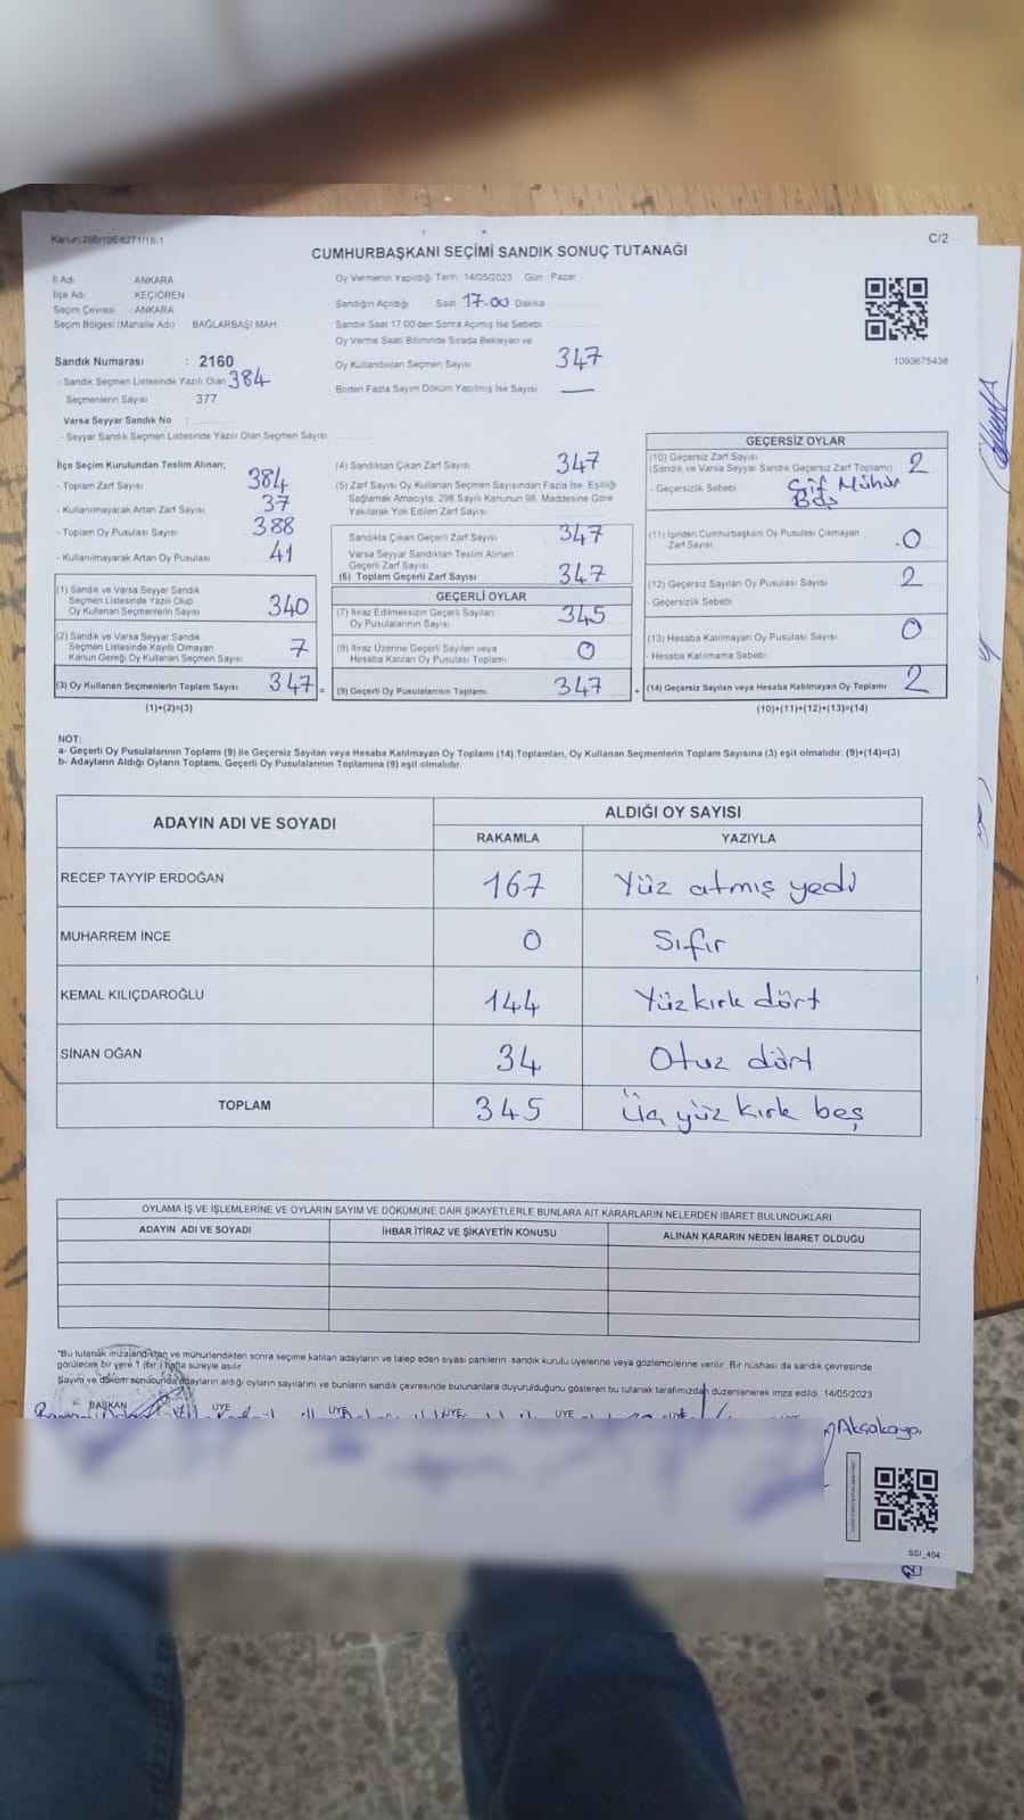 Kanun:298/106-6271/18-1
C/2
CUMHURBAŞKANI SEÇİMİ SANDIK SONUÇ TUTANAĞI
İl Adı : ANKARA
İlçe Adı : KEÇİÖREN
Seçim Çevresi : ANKARA
Seçim Bölgesi (Mahalle Adı) : BAĞLARBAŞI MAH.
Sandık Numarası : 2160
- Sandık Seçmen Listesinde Yazılı Olan 384
Seçmenlerin Sayısı 377
Varsa Seyyar Sandık No :
- Seyyar Sandık Seçmen Listesinde Yazılı Olan Seçmen Sayısı
Oy Vermenin Yapıldığı Tarih: 14/05/2023 Gün : Pazar
Sandığın Açıldığı Saat 17.00 Dakika
Sandık Saat 17.00'den Sonra Açılmış İse Sebebi
Oy Verme Saati Bitiminde Sırada Bekleyen ve
Oy Kullandırılan Seçmen Sayısı 347
Birden Fazla Sayım Döküm Yapılmış İse Sayısı —
1093675438
İlçe Seçim Kurulundan Teslim Alınan;
- Toplam Zarf Sayısı 384
- Kullanılmayarak Artan Zarf Sayısı 37
- Toplam Oy Pusulası Sayısı 388
- Kullanılmayarak Artan Oy Pusulası 41
(1) Sandık ve Varsa Seyyar Sandık
Seçmen Listesinde Yazılı Olup
Oy Kullanan Seçmenlerin Sayısı 340
(2) Sandık ve Varsa Seyyar Sandık
Seçmen Listesinde Kayıtlı Olmayan
Kanun Gereği Oy Kullanan Seçmen Sayısı 7
(3) Oy Kullanan Seçmenlerin Toplam Sayısı 347 =
(1)+(2)=(3)
(4) Sandıktan Çıkan Zarf Sayısı 347
(5) Zarf Sayısı Oy Kullanan Seçmen Sayısından Fazla İse, Eşitliği
Sağlamak Amacıyla, 298 Sayılı Kanunun 98. Maddesine Göre
Yakılarak Yok Edilen Zarf Sayısı
Sandıkta Çıkan Geçerli Zarf Sayısı 347
Varsa Seyyar Sandıktan Teslim Alınan
Geçerli Zarf Sayısı
(6) Toplam Geçerli Zarf Sayısı 347
GEÇERLİ OYLAR
(7) İtiraz Edilmeksizin Geçerli Sayılan
Oy Pusulalarının Sayısı 345
(8) İtiraz Üzerine Geçerli Sayılan veya
Hesaba Katılan Oy Pusulası Toplamı 0
(9) Geçerli Oy Pusulalarının Toplamı 347 +
GEÇERSİZ OYLAR
(10) Geçersiz Zarf Sayısı
(Sandık ve Varsa Seyyar Sandık Geçersiz Zarf Toplamı) 2
- Geçersizlik Sebebi Çift Mühür
Boş
(11) İçinden Cumhurbaşkanı Oy Pusulası Çıkmayan
Zarf Sayısı 0
(12) Geçersiz Sayılan Oy Pusulası Sayısı 2
- Geçersizlik Sebebi
(13) Hesaba Katılmayan Oy Pusulası Sayısı 0
- Hesaba Katılmama Sebebi
(14) Geçersiz Sayılan veya Hesaba Katılmayan Oy Toplamı 2
(10)+(11)+(12)+(13)=(14)
NOT:
a- Geçerli Oy Pusulalarının Toplamı (9) ile Geçersiz Sayılan veya Hesaba Katılmayan Oy Toplamı (14) Toplamları, Oy Kullanan Seçmenlerin Toplam Sayısına (3) eşit olmalıdır. (9)+(14)=(3)
b- Adayların Aldığı Oyların Toplamı, Geçerli Oy Pusulalarının Toplamına (9) eşit olmalıdır.
ADAYIN ADI VE SOYADI
ALDIĞI OY SAYISI
RAKAMLA YAZIYLA
RECEP TAYYİP ERDOĞAN 167 Yüz atmış yedi
MUHARREM İNCE 0 Sıfır
KEMAL KILIÇDAROĞLU 144 Yüzkırk dört
SİNAN OĞAN 34 Otuz dört
TOPLAM 345 Üç yüz kırk beş
OYLAMA İŞ VE İŞLEMLERİNE VE OYLARIN SAYIM VE DÖKÜMÜNE DAİR ŞİKAYETLERLE BUNLARA AİT KARARLARIN NELERDEN İBARET BULUNDUKLARI
ADAYIN ADI VE SOYADI İHBAR İTİRAZ VE ŞİKAYETİN KONUSU ALINAN KARARIN NEDEN İBARET OLDUĞU
*Bu tutanak imzalandıktan ve mühürlendikten sonra seçime katılan adayların ve talep eden siyasi partilerin sandık kurulu üyelerine veya gözlemcilerine verilir. Bir nüshası da sandık çevresinde
görülecek bir yere 1 (bir) hafta süreyle asılır.
Sayım ve döküm sonucunda adayların aldığı oyların sayılarını ve bunların sandık çevresinde bulunanlara duyurulduğunu gösteren bu tutanak tarafımızdan düzenlenerek imza edildi. 14/05/2023
BAŞKAN ÜYE ÜYE ÜYE ÜYE ÜYE
Akçakaya
SSİ_404